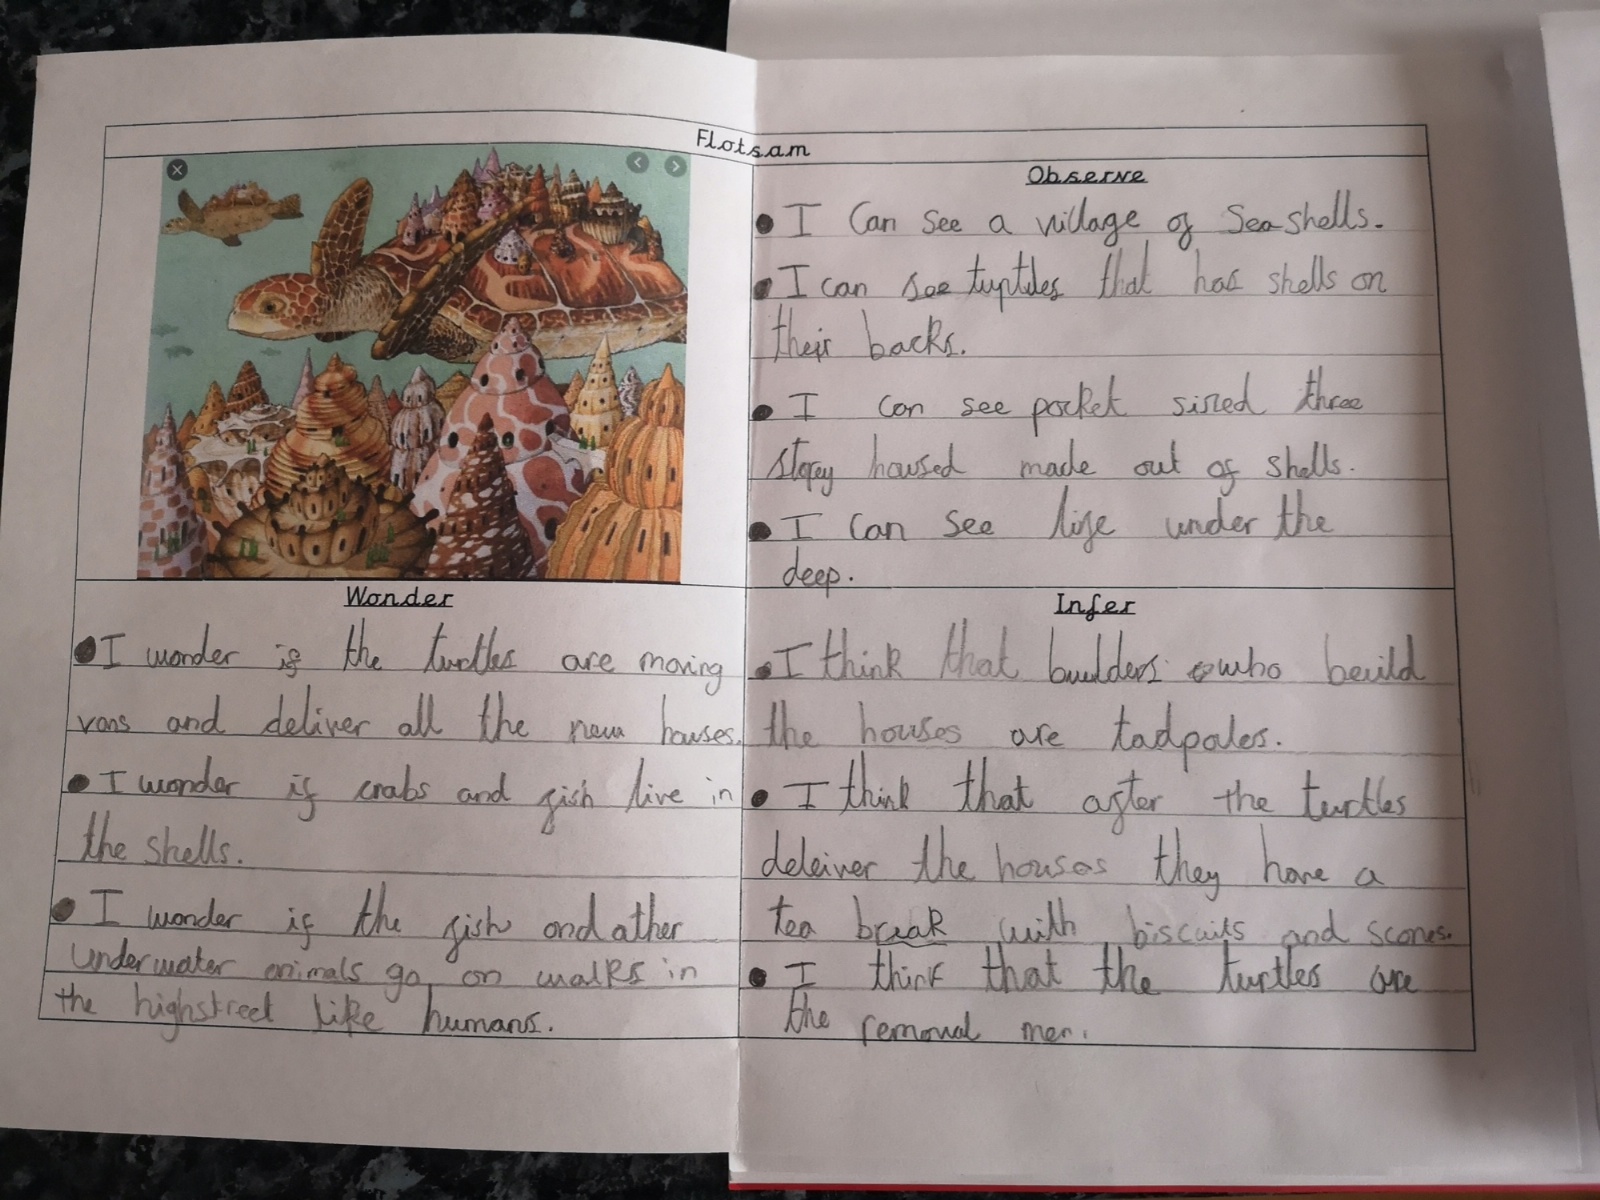 Flotsam
Observe
I can see a village of Seashells.
I can see turtles that has shells on
their backs.
I can see pocket sized three
storey housed made out of shells.
I can see life under the
deep.
Wonder
I wonder if the turtles are moving
vans and deliver all the new houses.
I wonder if crabs and fish live in
the shells.
I wonder if the fish and other
underwater animals go on walks in
the highstreet like humans.
Infer
I think that builders who beuild
the houses are tadpoles.
I think that after the turtles
deleiver the houses they have a
tea break with biscuits and scones.
I think that the turtles are
the removal men.